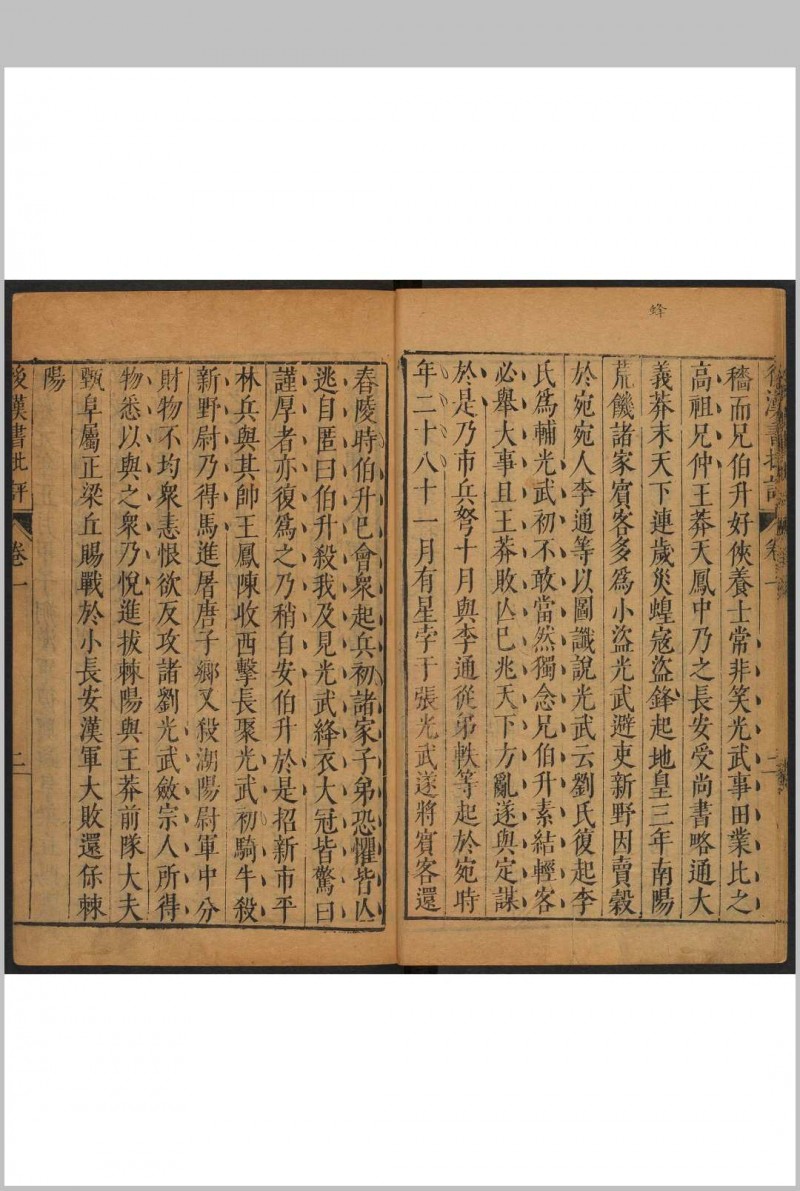 蜂
穡而兄伯升好俠養士常非笑光武事田業比之
高祖兄仲王莽天鳳中乃之長安受尚書略通大
義莽末天下連歲災蝗寇盜鋒起地皇三年南陽
荒饑諸家賓客多為小盜光武避吏新野因賣穀
於宛宛人李通等以圖讖說光武云劉氏復起李
氏爲輔光武初不敢當然獨念兄伯升素結輕客
必舉大事且王莽敗亾已兆天下方亂遂與定謀
於是乃市兵弩十月與李通從弟軼等起於宛時
年二十八十一月有星孛于張光武遂將賓客還
舂陵時伯升已會衆起兵初諸家子弟恐懼皆亾
逃自匿曰伯升殺我及見光武絳衣大冠皆驚曰
謹厚者亦復爲之乃稍自安伯升於是招新市平
林兵與其帥王鳳陳收西擊長聚光武初騎牛殺
新野尉乃得馬進屠唐子鄉又殺湖陽尉軍中分
財物不均衆恚恨欲反攻諸劉光武斂宗人所得
物悉以與之衆乃悅進拔棘陽與王莽前隊大夫
甄阜屬正梁丘賜戰於小長安漢軍大敗還保棘
陽
後漢書批評 卷一 二